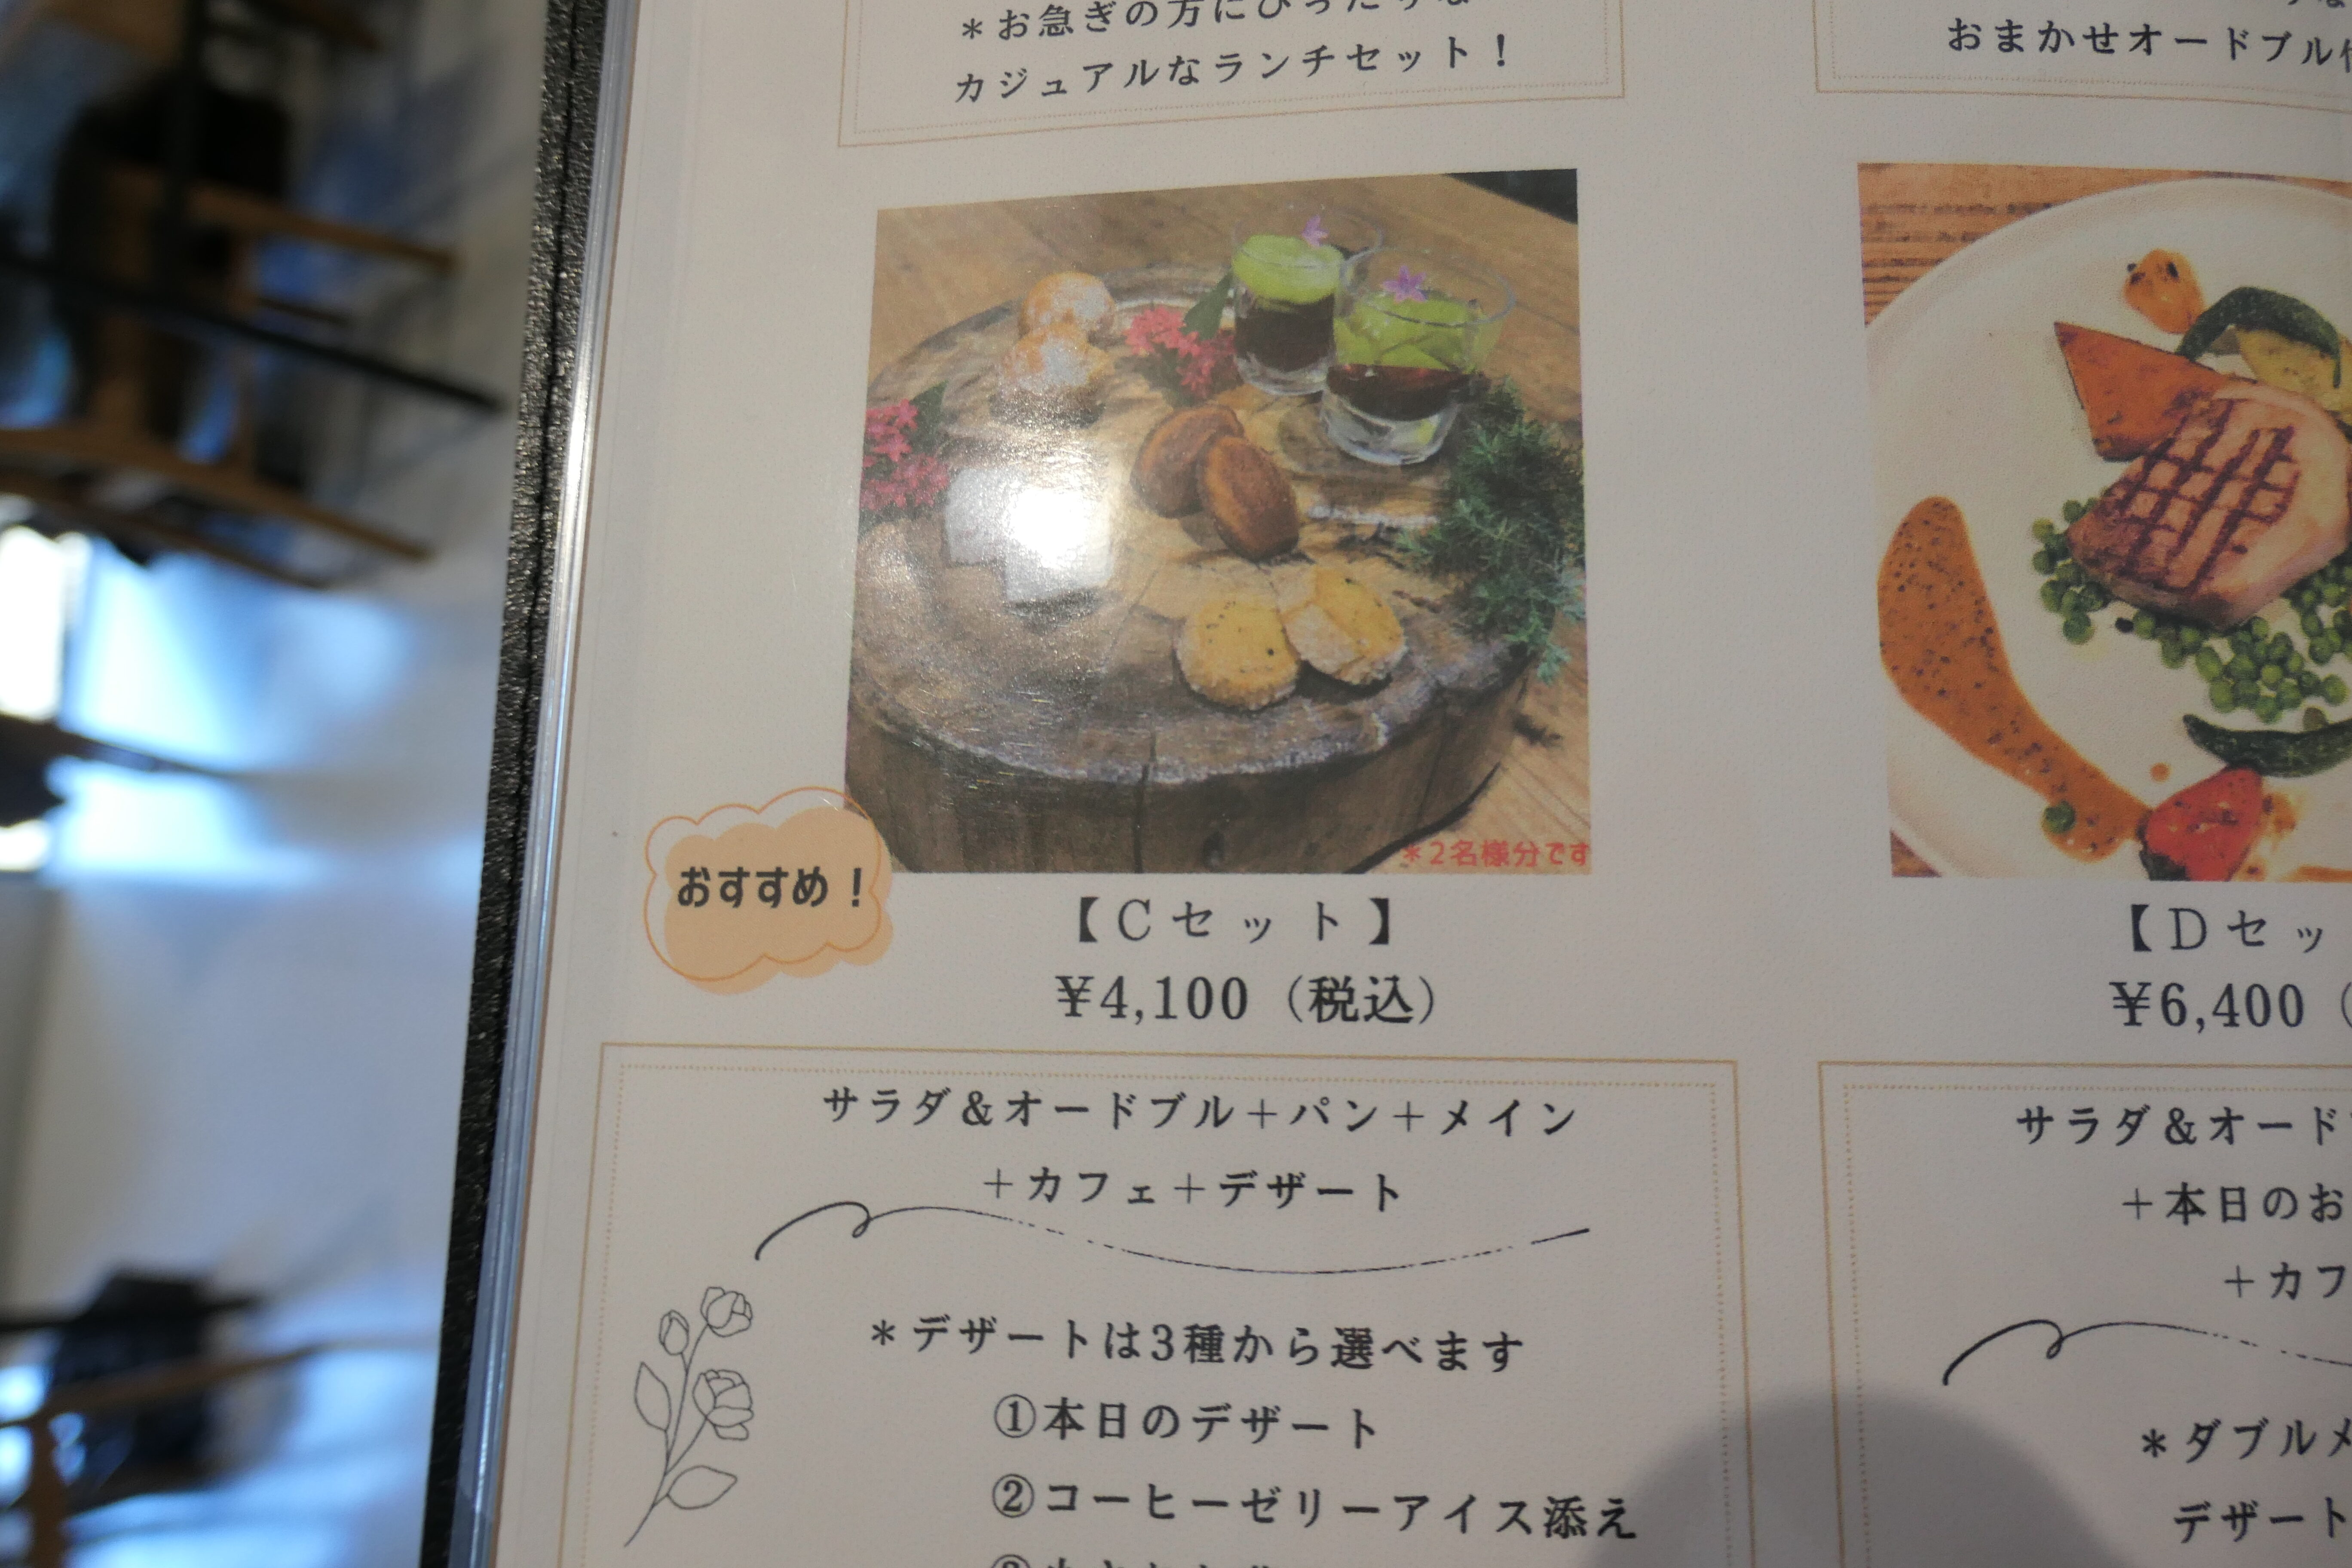 ＊お急ぎの方にぴったりな
カジュアルなランチセット！
おまかせオードブル
＊2名様分です
おすすめ！
【Cセット】
¥4,100（税込）
サラダ＆オードブル＋パン＋メイン
＋カフェ＋デザート
＊デザートは3種から選べます
①本日のデザート
②コーヒーゼリーアイス添え
【Dセッ
¥6,400（
サラダ＆オード
＋本日のお
＋カフ
＊ダブルメ
デザート